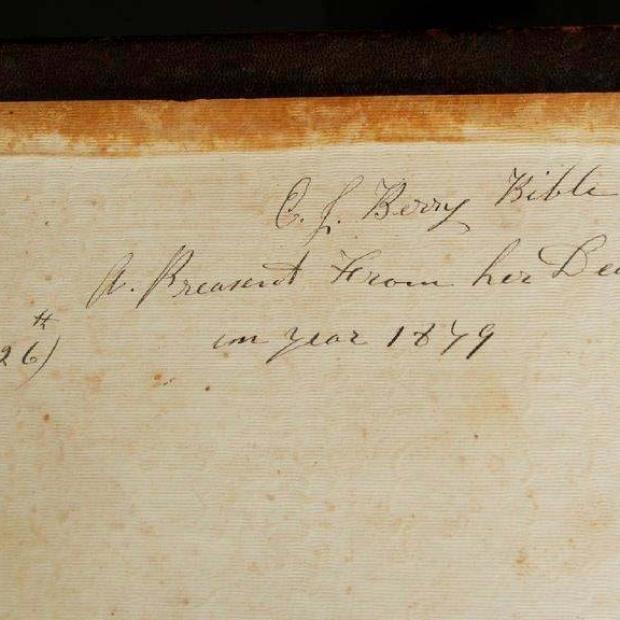 C. J. Berry Bible
A. Preasent From her Dea
th
26) in year 1879